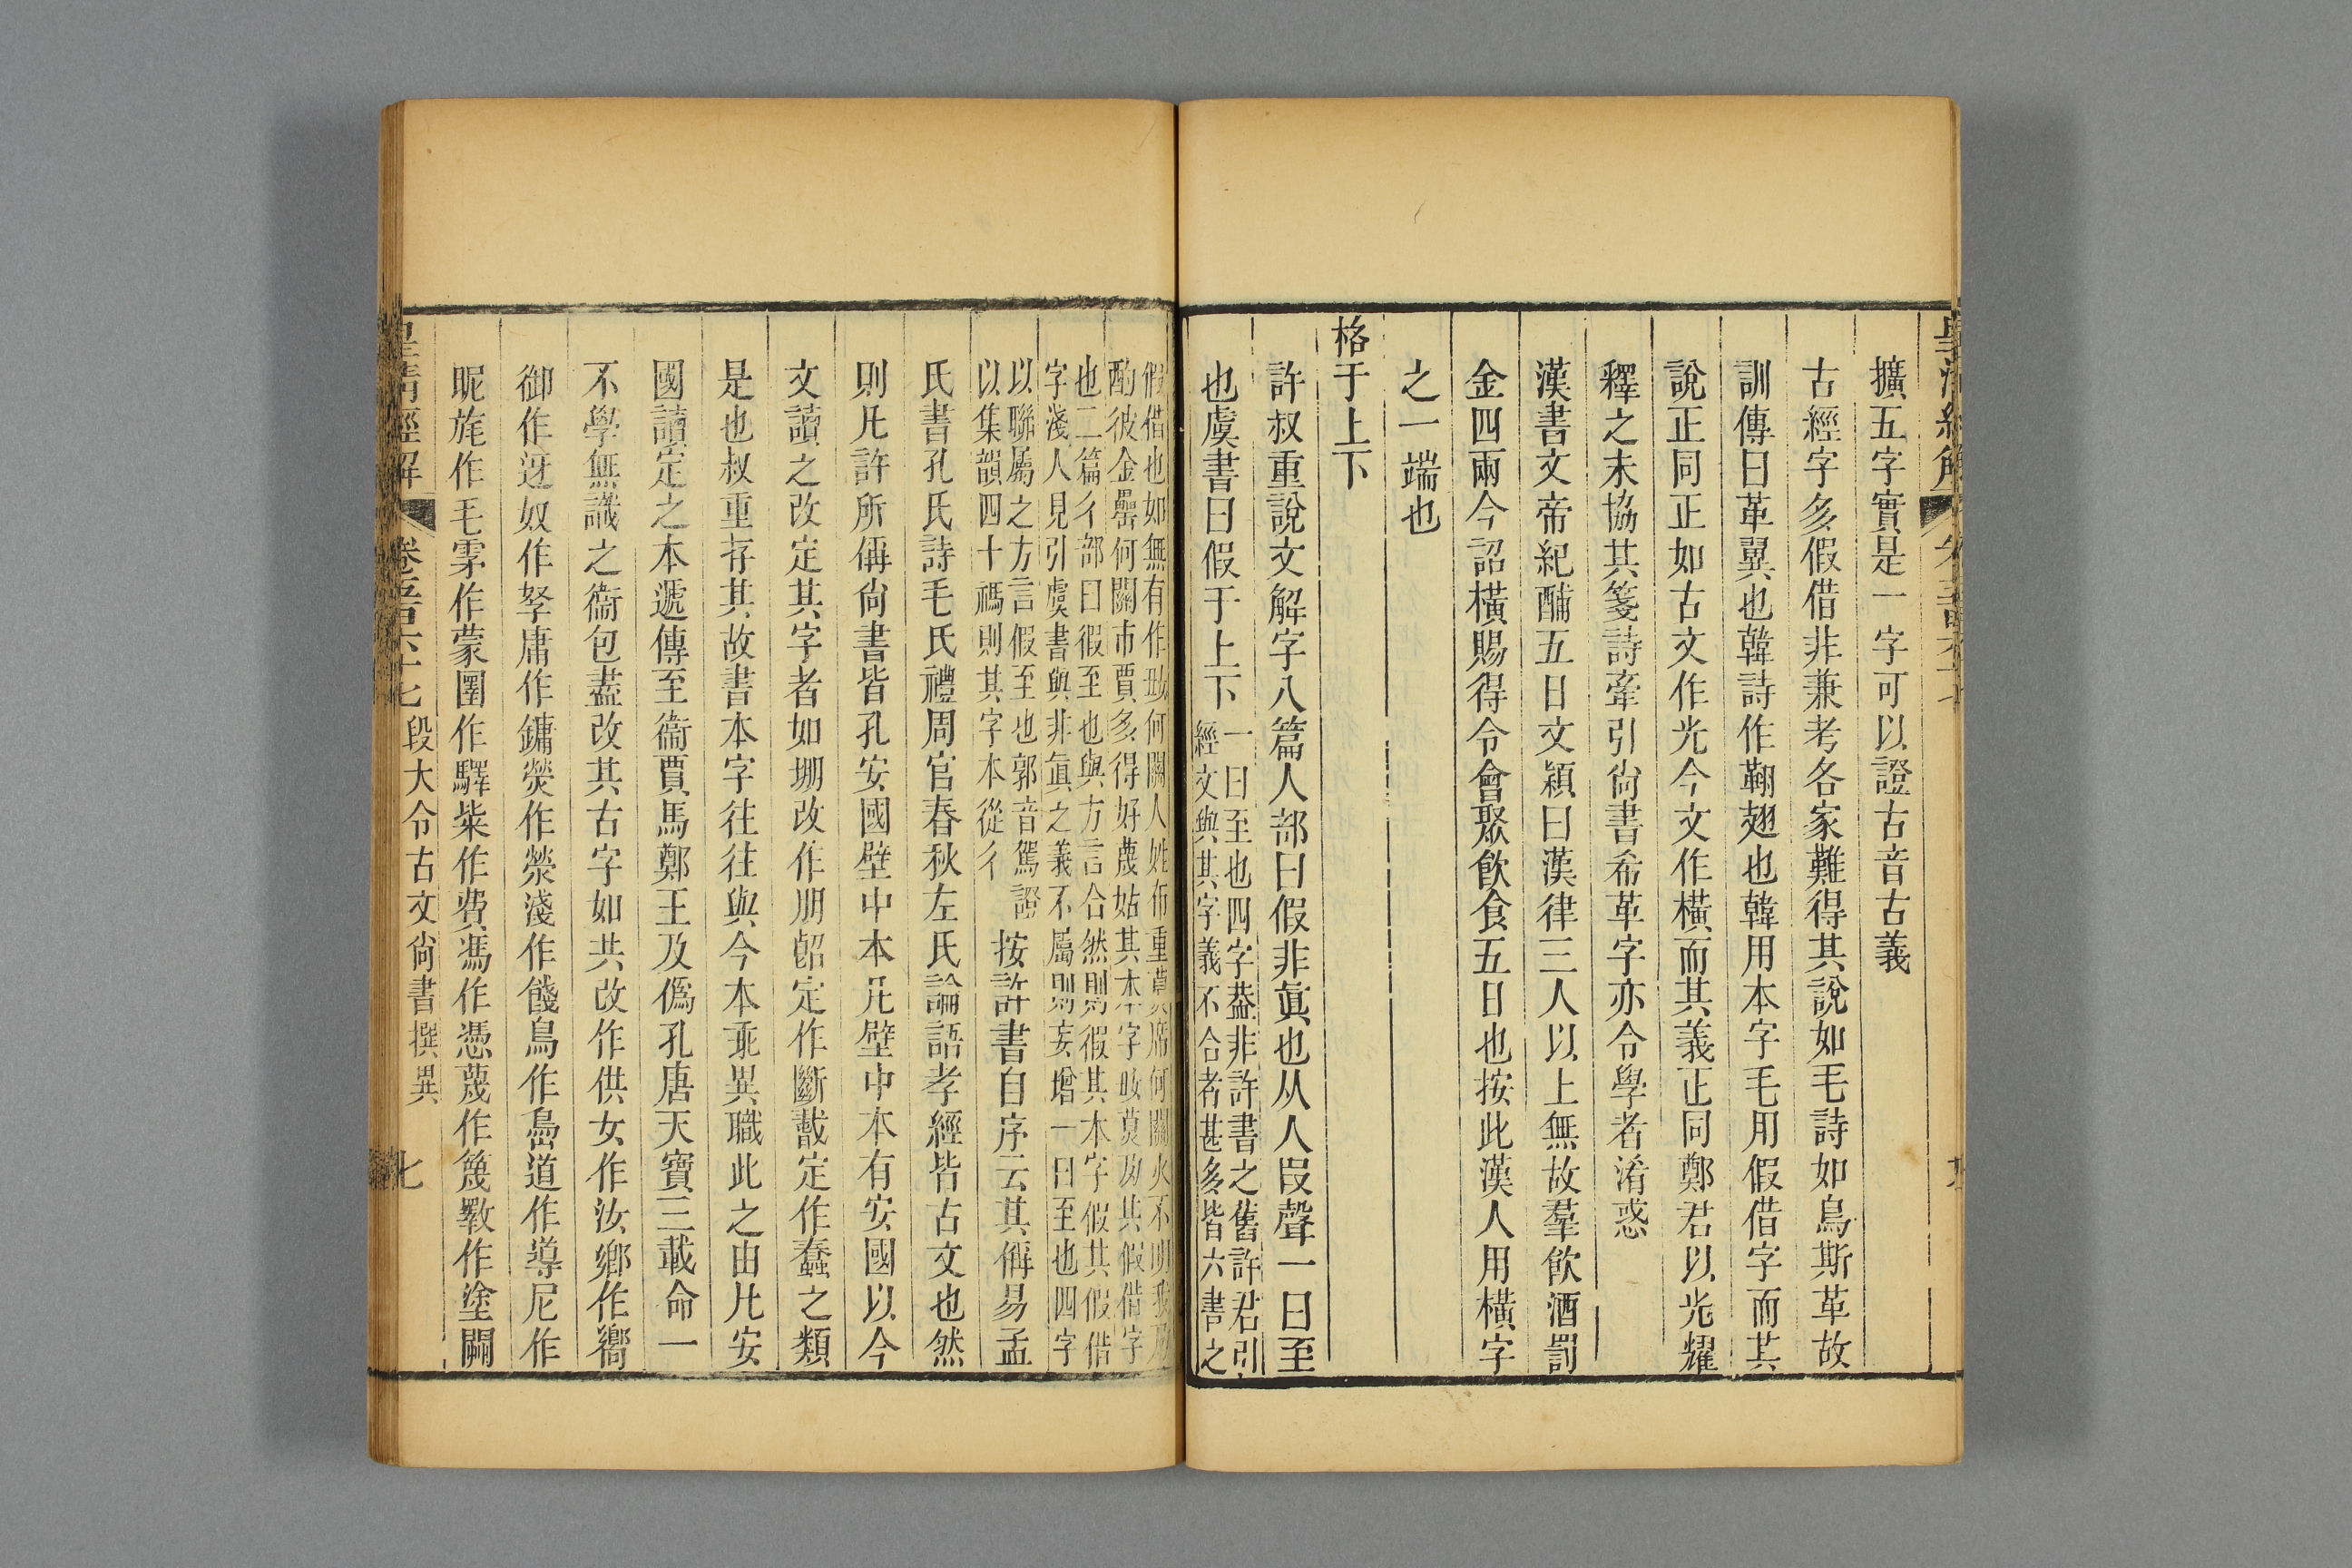 擴五字實是一字可以證古音古義
古經字多假借非兼考各家難得其說如毛詩如鳥斯革故
訓傳曰革翼也韓詩作鞠翅也韓用本字毛用假借字而其
說正同正如古文作光今文作橫而其義正同鄭君以光耀
釋之未協其箋詩牽引尙書希革字亦令學者淆惑
漢書文帝紀酺五日文穎曰漢律三人以上無故羣飲酒罰
金四兩今詔橫賜得令會聚飲食五日也按此漢人用橫字
之一端也
格于上下
許叔重說文解字八篇人部曰假非眞也从人叚聲一曰至
也虞書曰假于上下
一曰至也四字葢非許書之舊許君引
經文與其字義不合者甚多皆六書之
假借也如無有作㚥何關人姓布重莫席何關火不明我乃
酌彼金罍何關市賈多得好蔑姑其本字㚥莫夃其假借字
也二篇彳部曰徦至也與方言合然則徦其本字假其假借
字淺人見引虞書與非眞之義不屬則妄增一曰至也四字
以聯屬之方言假至也郭音駕證
以集韻四十禡則其字本從彳
按許書自序云其偁易孟
氏書孔氏詩毛氏禮周官春秋左氏論語孝經皆古文也然
則凡許所偁尙書皆孔安國壁中本凡壁中本有安國以今
文讀之改定其字者如堋改作朋䛒定作斷𢧵定作蠢之類
是也叔重存其故書本字往往與今本乖異職此之由凡安
國讀定之本遞傳至衞賈馬鄭王及僞孔唐天寶三載命一
不學無識之衞包盡改其古字如共改作供女作汝鄉作嚮
御作迓奴作孥庸作鏞熒作滎淺作餞鳥作島道作導尼作
昵旄作毛雺作蒙圛作驛粊作費馮作憑蔑作篾斁作塗闢
皇清經解
卷五百六十七
段大令古文尙書撰異
七